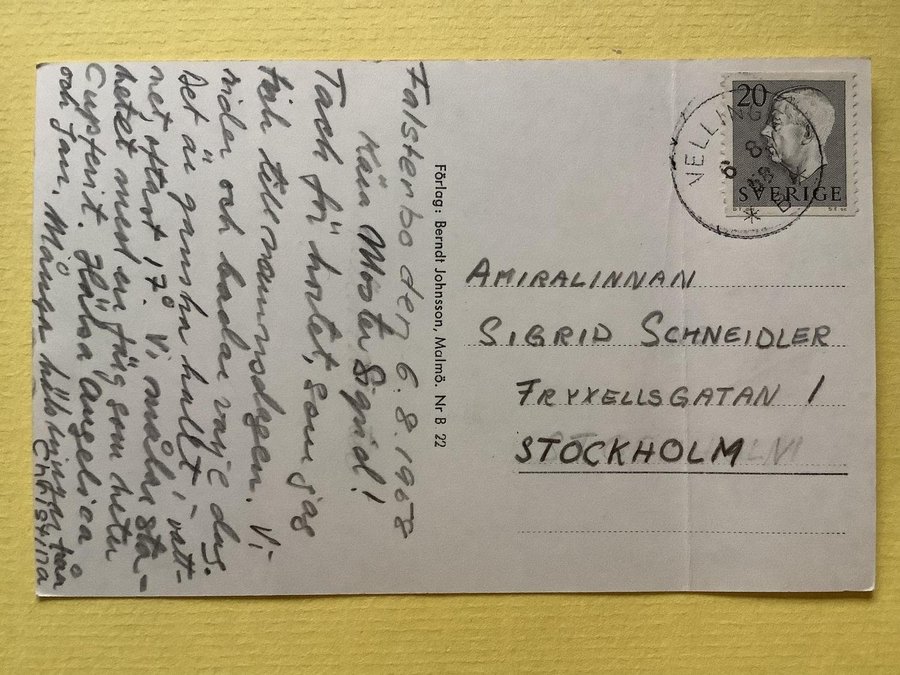 Falsterbo den 6.8.1958
Kära Moster Sigrid!
Tack för kortet, som jag
fick till namnsdagen. Vi
rider och badar varje dag.
Det är ganska kallt i vatt-
net, oftast 17°. Vi målar sta-
ketet med en färg som heter
Cuprinit. Hälsa Angelica
och Jan. Många hälsningar från
Christina
Förlag: Berndt Johnsson, Malmö. Nr B 22
20
SVERIGE
VELLINGE
6 8 58
AMIRALINNAN
SIGRID SCHNEIDLER
FRYXELLSGATAN 1
STOCKHOLM